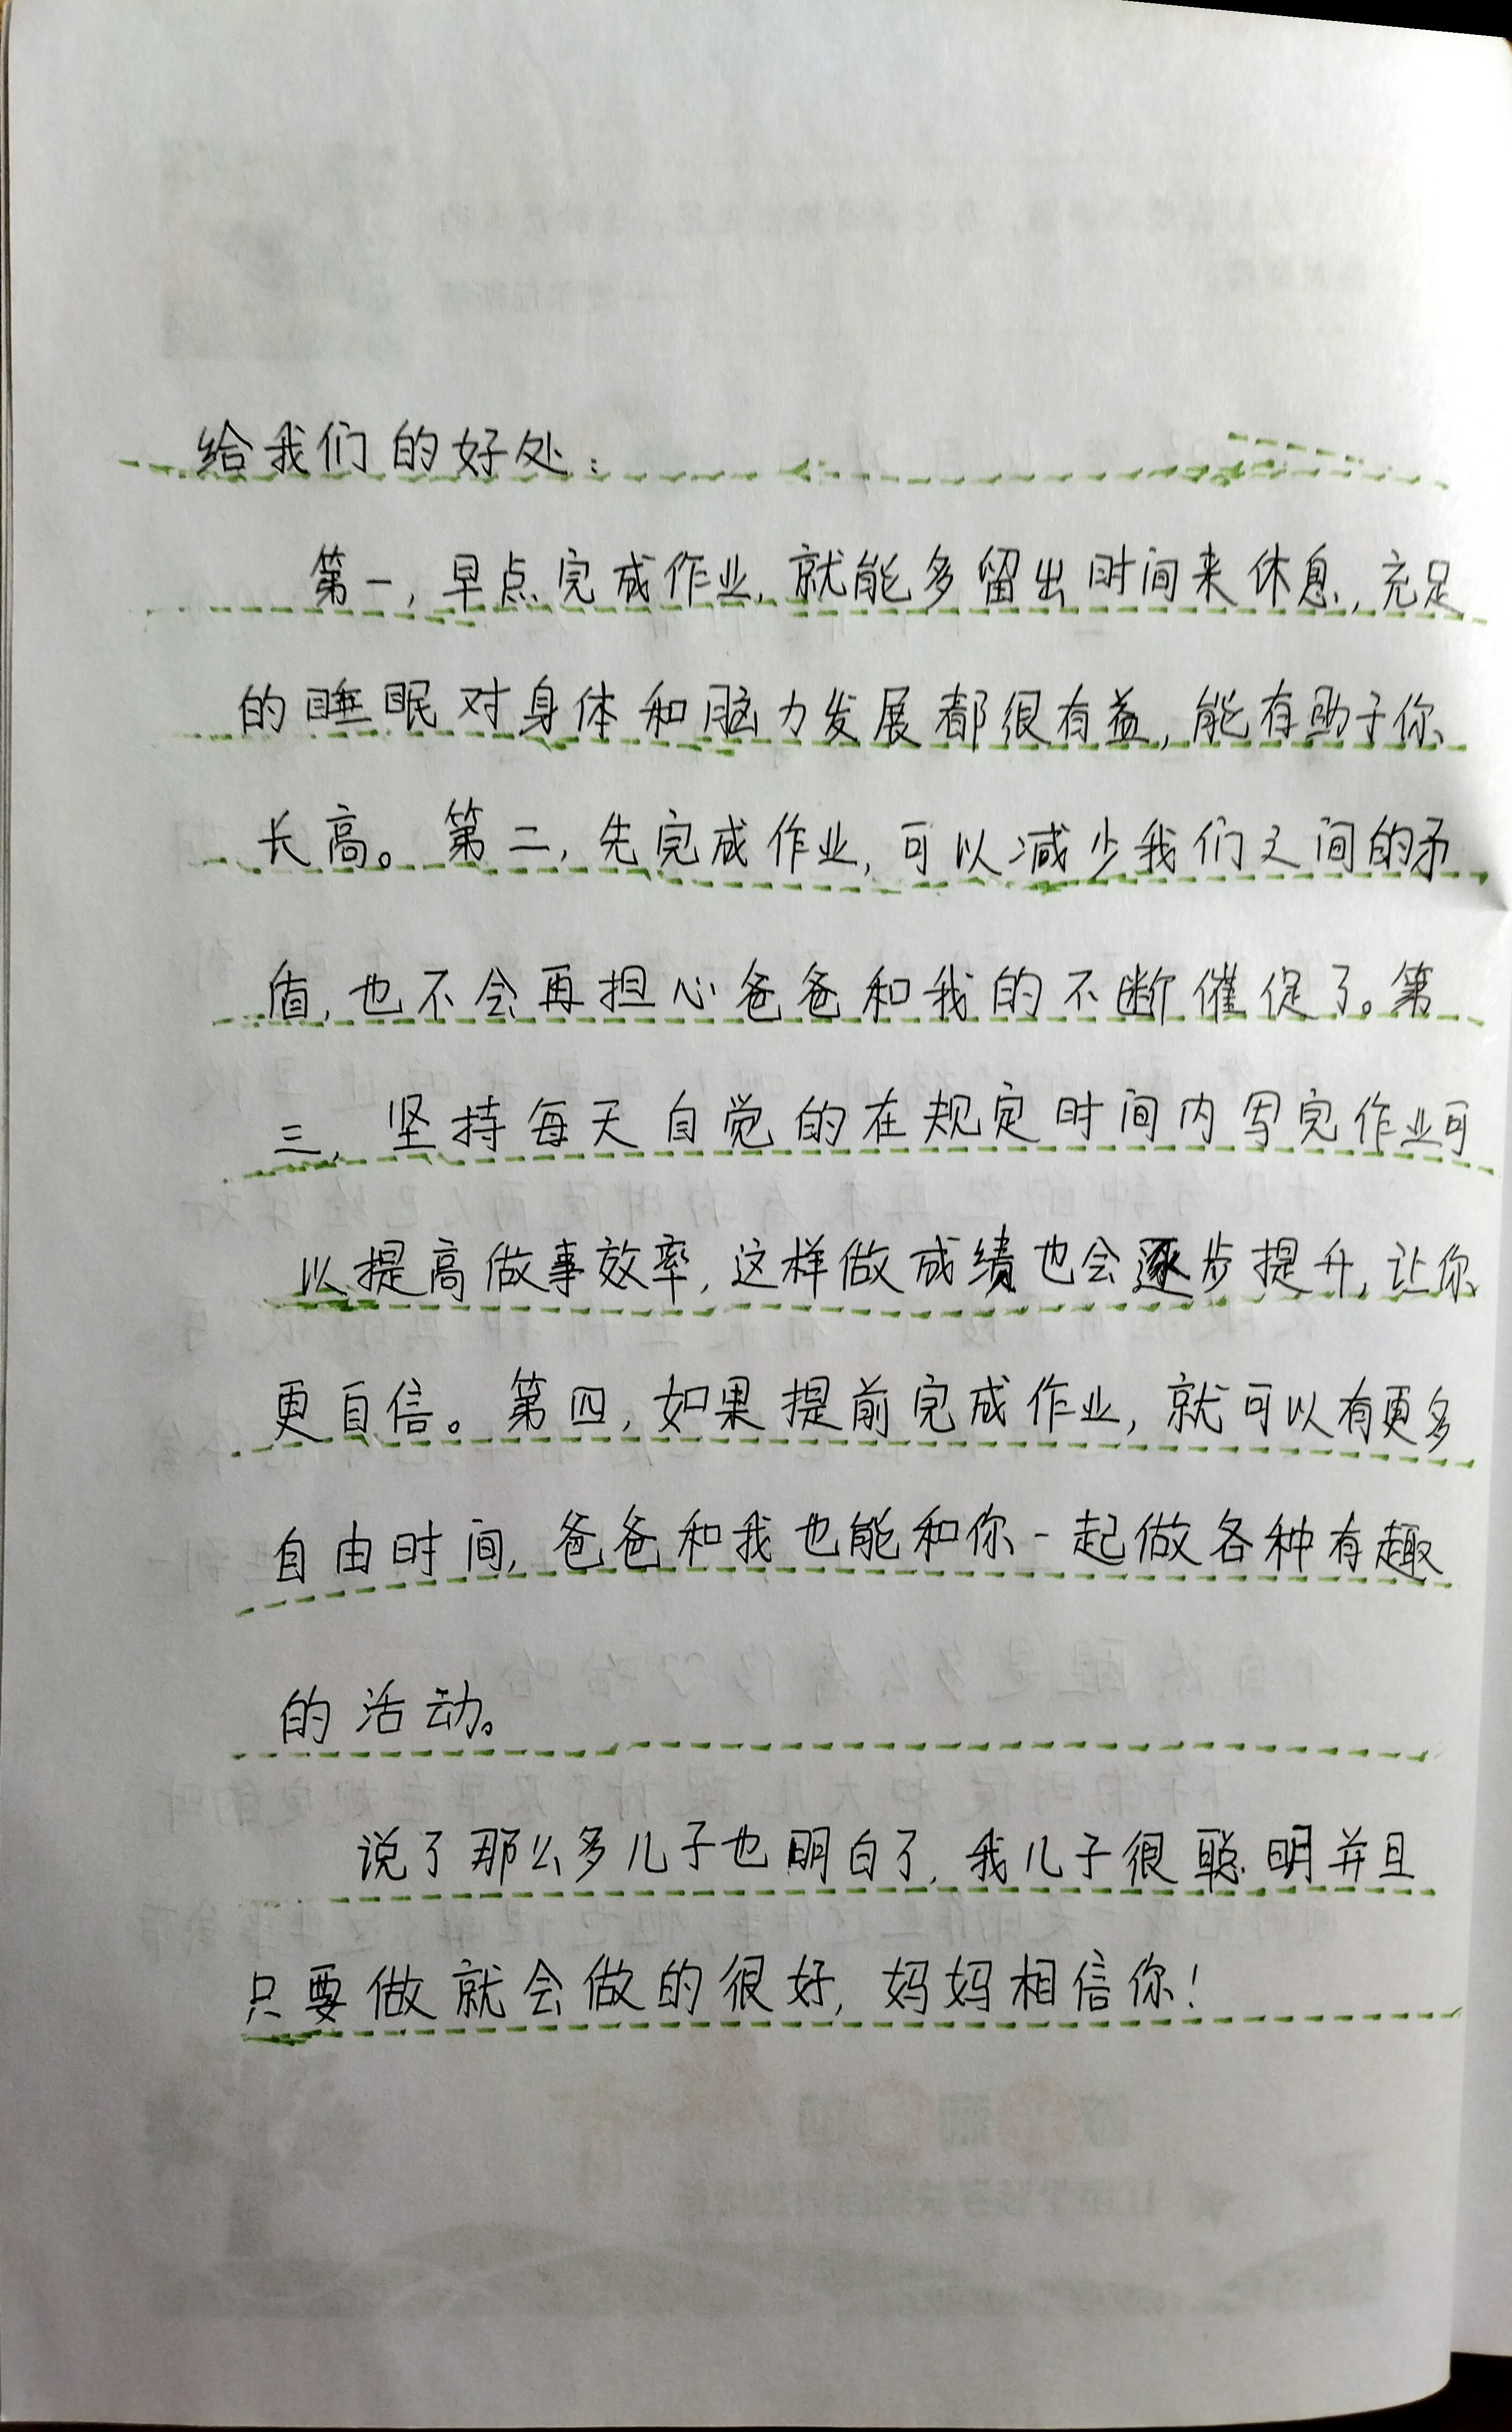 给我们的好处：
第一，早点完成作业，就能多留出时间来休息，充足
的睡眠对身体和脑力发展都很有益，能有助于你
长高。第二，先完成作业，可以减少我们之间的矛
盾，也不会再担心爸爸和我的不断催促了。第
三，坚持每天自觉的在规定时间内写完作业可
以提高做事效率，这样做成绩也会逐步提升，让你
更自信。第四，如果提前完成作业，就可以有更多
自由时间，爸爸和我也能和你一起做各种有趣
的活动。
说了那么多儿子也明白了，我儿子很聪明并且
只要做就会做的很好，妈妈相信你！